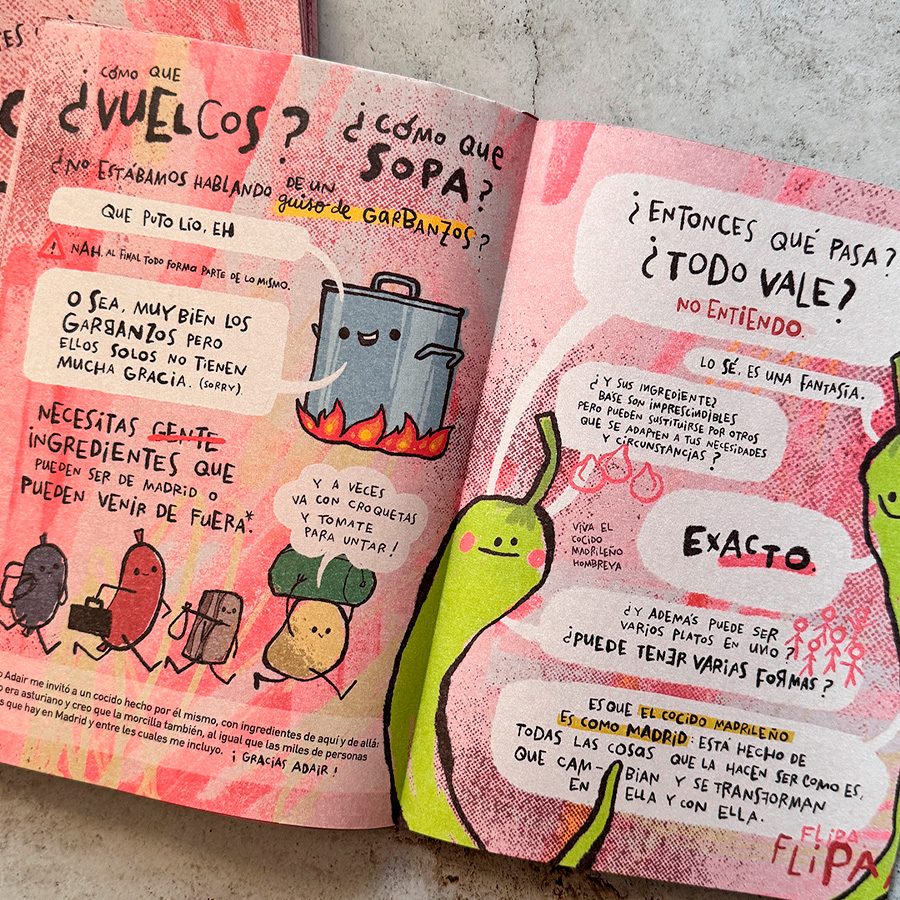 ¿CÓMO QUE
¿VUELCOS?
¿CÓMO QUE
SOPA?
¿NO ESTÁBAMOS HABLANDO DE UN
guiso de GARBANZOS?
QUE PUTO LÍO, EH
NAH. AL FINAL TODO FORMA PARTE DE LO MISMO.
O SEA, MUY BIEN LOS
GARBANZOS PERO
ELLOS SOLOS NO TIENEN
MUCHA GRACIA. (SORRY)
NECESITAS GENTE
INGREDIENTES QUE
PUEDEN SER DE MADRID O
PUEDEN VENIR DE FUERA*.
Y A VECES
VA CON CROQUETAS
Y TOMATE
PARA UNTAR!
Adair me invitó a un cocido hecho por él mismo, con ingredientes de aquí y de allá:
era asturiano y creo que la morcilla también, al igual que las miles de personas
que hay en Madrid y entre les cuales me incluyo.
¡GRACIAS ADAIR!
¿ENTONCES QUÉ PASA?
¿TODO VALE?
NO ENTIENDO.
LO SÉ. ES UNA FANTASÍA.
¿Y SUS INGREDIENTE?
BASE SON IMPRESCINDIBLES
PERO PUEDEN SUSTITUIRSE POR OTROS
QUE SE ADAPTEN A TUS NECESIDADES
Y CIRCUNSTANCIAS?
VIVA EL
COCIDO
MADRILEÑO
HOMBREYA
EXACTO.
¿Y ADEMÁS PUEDE SER
VARIOS PLATOS EN UNO?
¿PUEDE TENER VARIAS FORMAS?
ES QUE EL COCIDO MADRILEÑO
ES COMO MADRID: ESTÁ HECHO DE
TODAS LAS COSAS QUE LA HACEN SER COMO ES,
QUE CAM-BIAN Y SE TRANSFORMAN
EN ELLA Y CON ELLA.
FLIPA
FLIPA